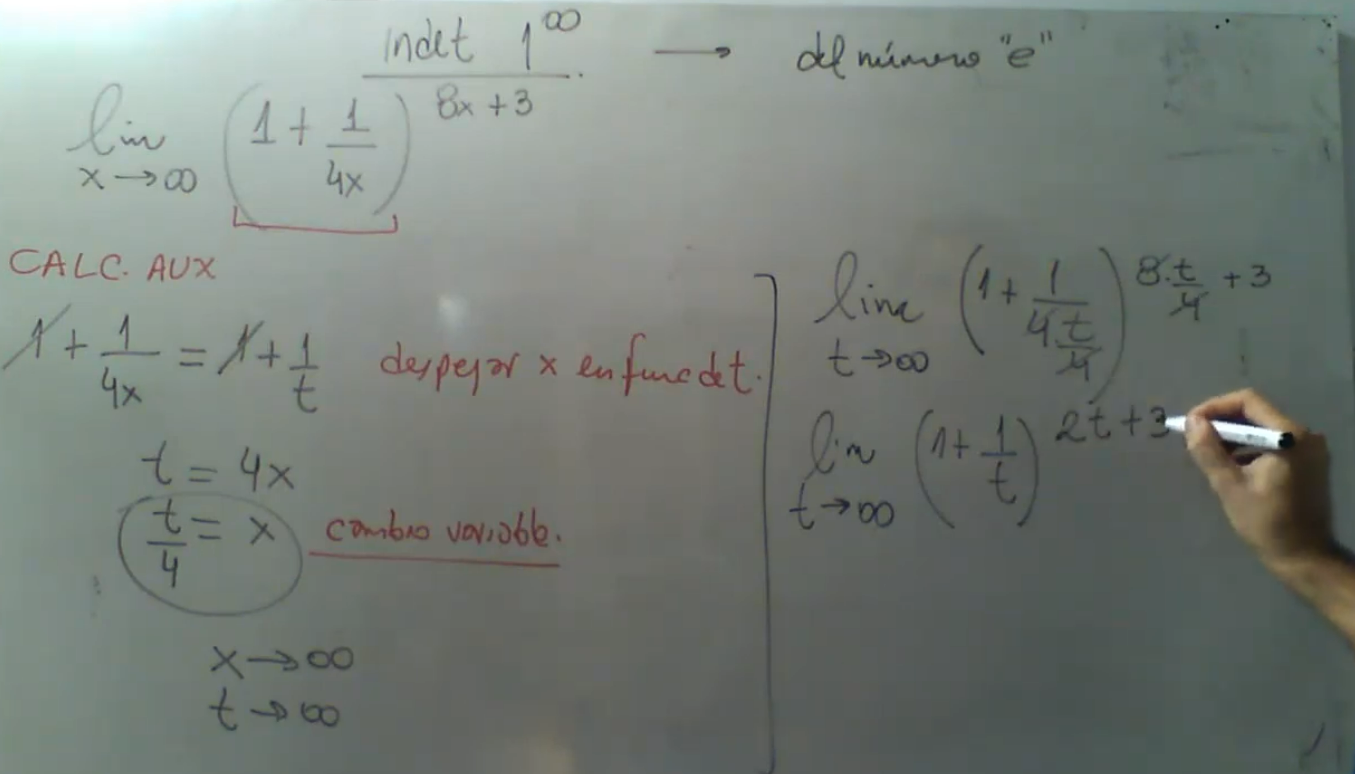 indet 1^∞ → del número "e"
lim x→∞ (1 + 1/4x)^(8x+3)
CALC. AUX
1 + 1/4x = 1 + 1/t despejar x en func de t.
t = 4x
t/4 = x cambio variable.
x→∞
t→∞
lim t→∞ (1 + 1/(4 t/4))^(8·t/4 + 3)
lim t→∞ (1 + 1/t)^(2t+3)